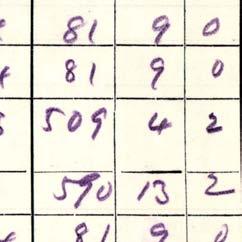 81 9 0
81 9 0
509 4 2
590 13 2
81 9 0